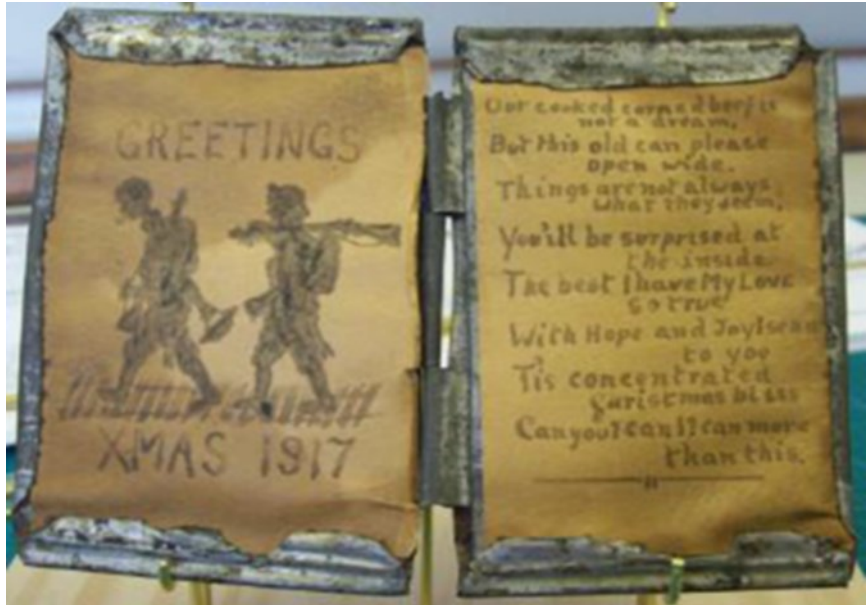 GREETINGS
XMAS 1917
Our cooked corned beef is
not a dream,
But this old can please
open wide.
Things are not always
what they seem,
You'll be surprised at
the inside
The best I have My Love
so true
With Hope and Joy I send
to you
Tis concentrated
Christmas bliss
Can you? can I? can more
than this.